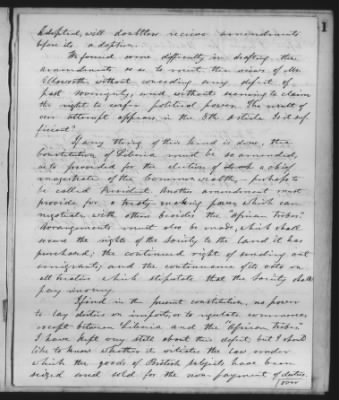 1
adopted, will doubtless receive amendments
before its adoption.
We found some difficulty in drafting the
amendments so as to meet the views of Mr
Ellsworth without conceding any defect of
past sovereignty, and without seeming to claim
the right to confer political power. The result of
our attempt appears in the 8th article. Is it suf
ficient?
If any thing of this kind is done, the
Constitution of Liberia must be so amended,
as to provide for the election of a chief
magistrate of the Commonwealth, perhaps to
be called President. Another amendment must
provide for a treaty making power which can
negotiate with others besides the "African Tribes".
Arrangements must also be made, which shall
secure the rights of the Society to the land it has
purchased; the continued right of sending out
emigrants; and the continuance of its vote on
all treaties which stipulate that the Society shall
pay money.
I find in the present constitution, no power
to lay duties on imports, or to regulate commerce,
except between Liberia and the "African Tribes"
I have kept very still about this defect, but I should
like to know whether it vitiates the law under
which the goods of British subjects have been
seized and sold for the non-payment of duties.